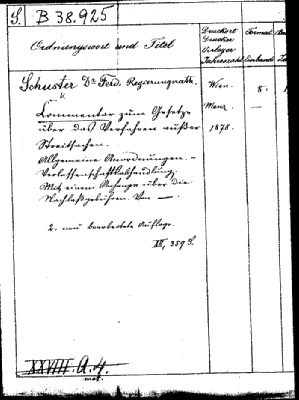 S. B 38.925
Ordnungswort und Titel
Druckort
Drucker
Verleger
Jahreszahl
Format
Einband
Schuster Dr Ferd. Regierungsrath.
Wien.
8.
1
Commentar zum Gesetze
Manz.
—
über das Verfahren außer
1878.
Streitsachen.
Allgemeine Anordnungen. –
Verlassenschaftsabhandlung.
Mit einem Anhange über die
Nachlaßgebühren. Von —.
2. neu bearbeitete Auflage.
XII, 359 S.
XXVIII. A. 4.